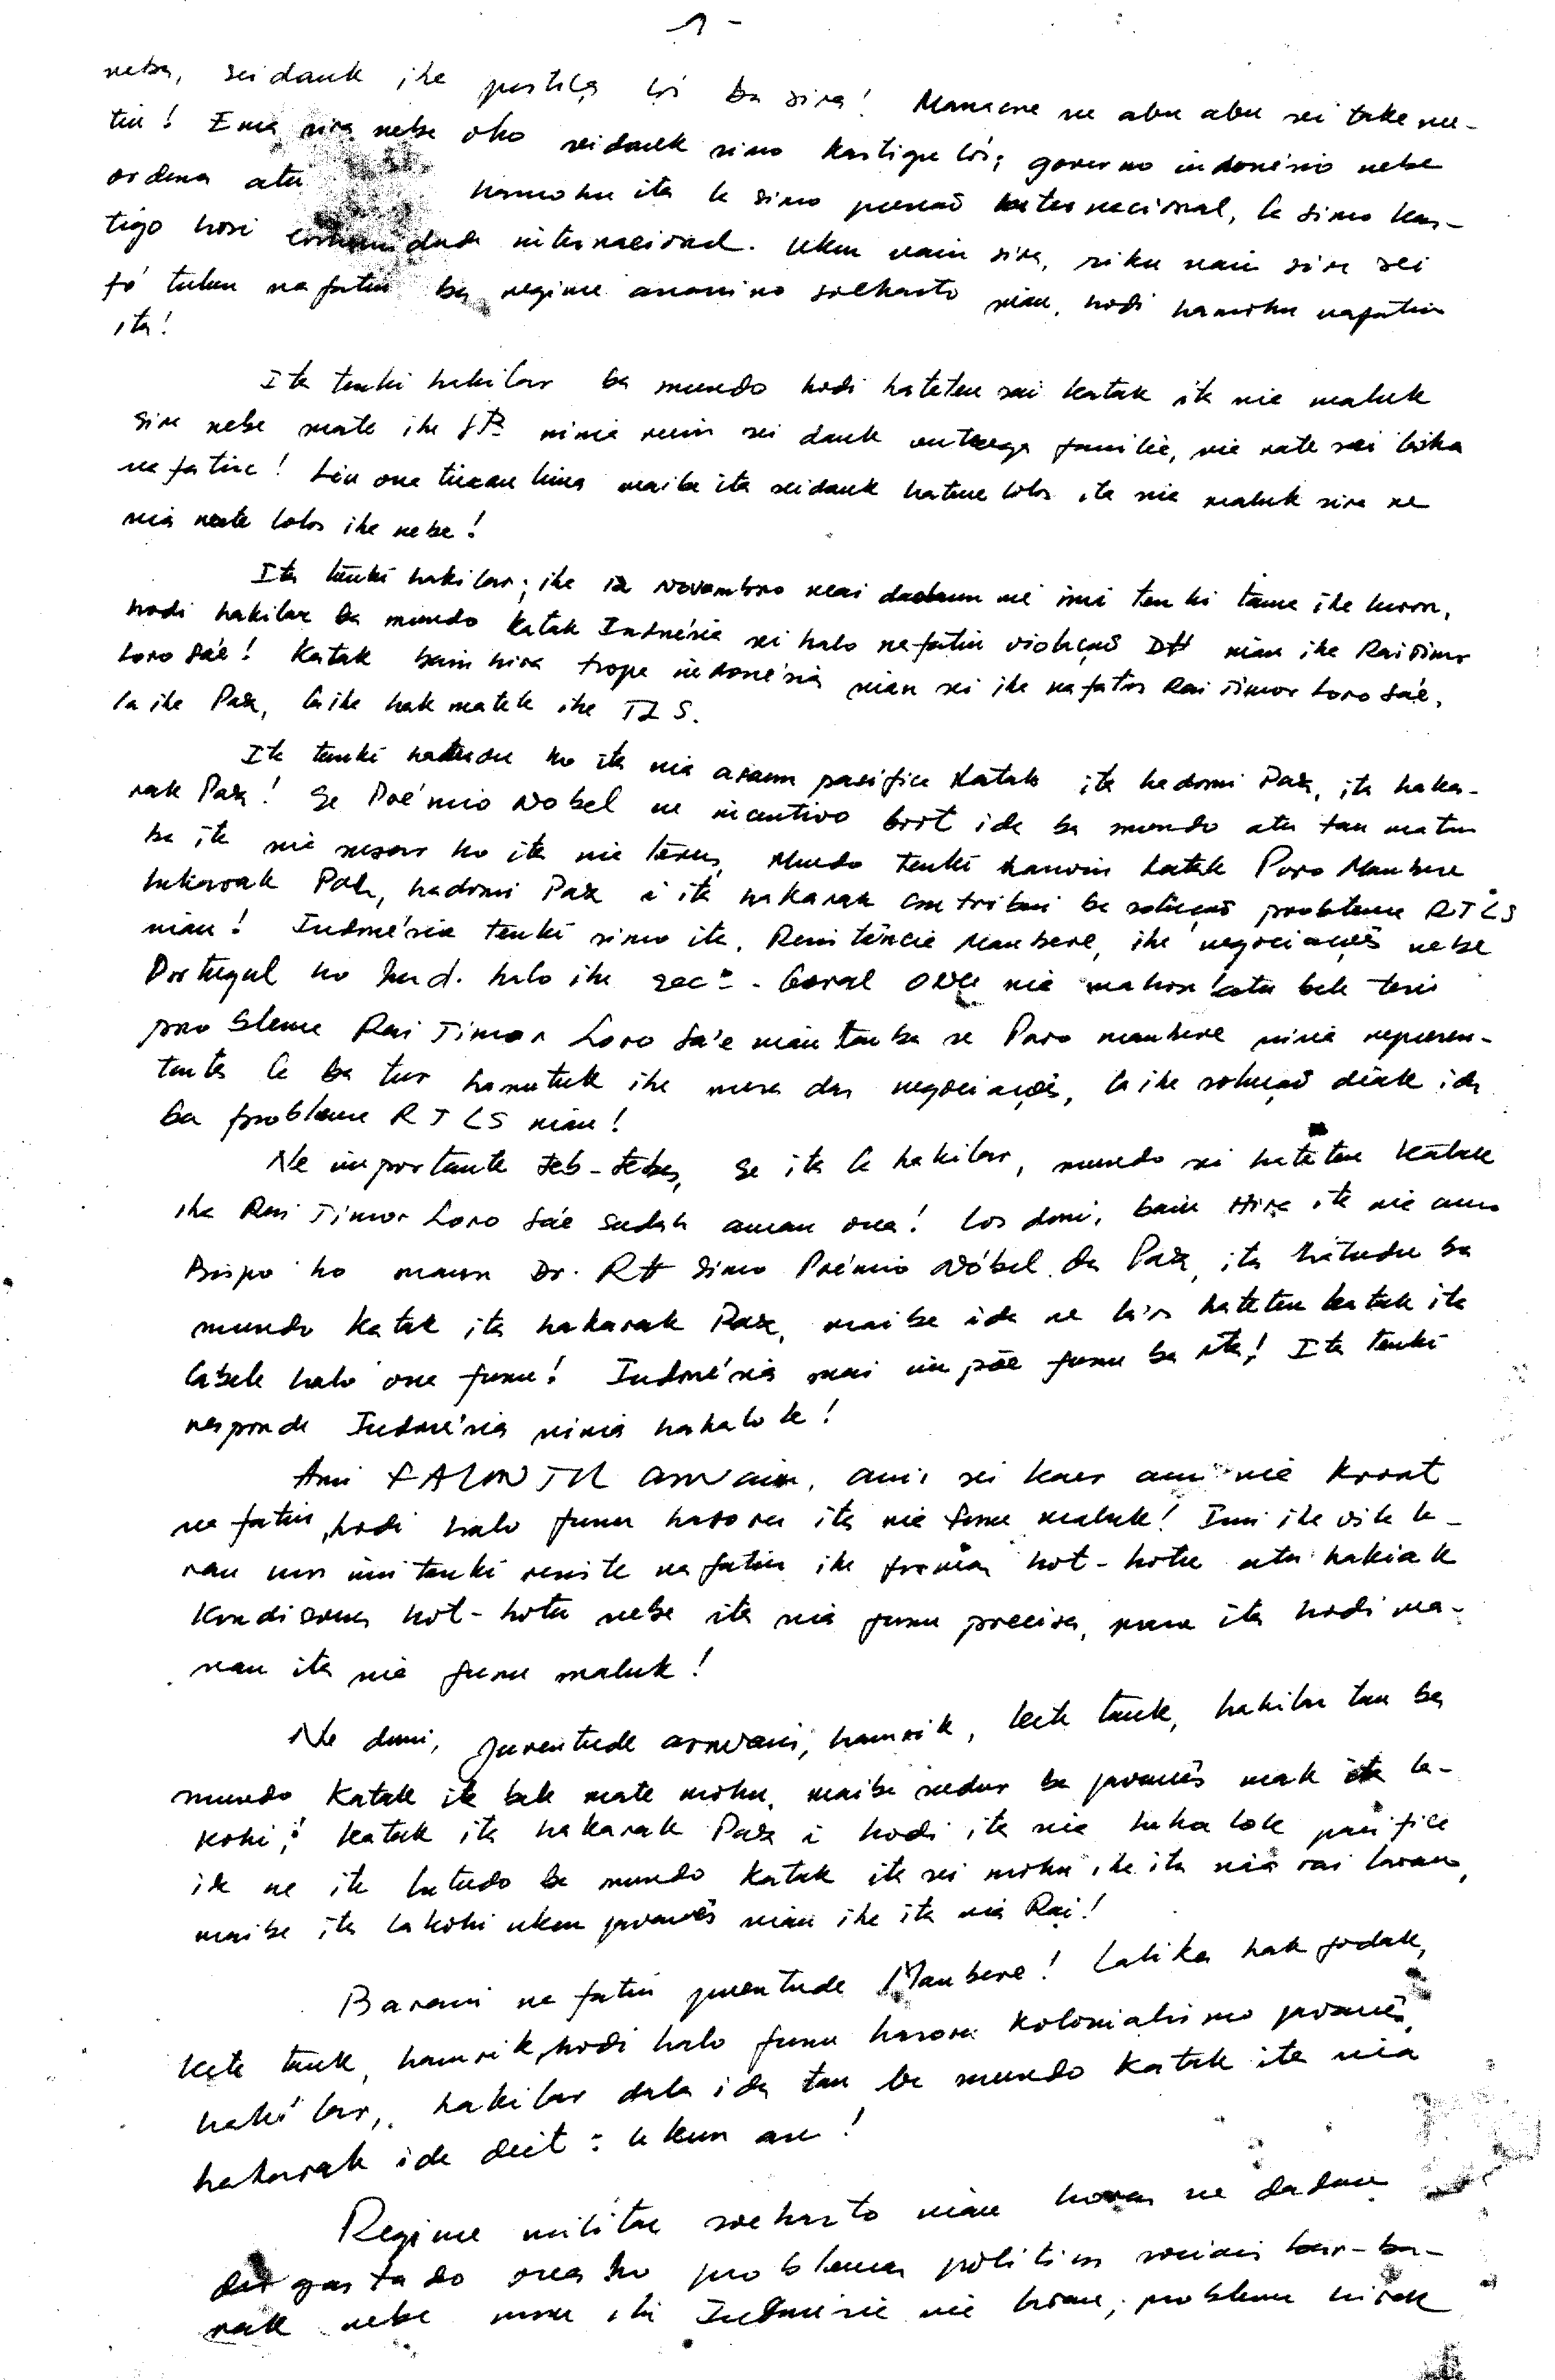 1 -
neba, seidauk ihe justiça lós ba sira! Manacne ne abu abu sei take ne-
tin! Ema sira nebe oho seidauk simo kastigu lós; governo indonésio nebe
ordena atu hamohu ita la simo pressaõ internacional, la simo kas-
tigo hosi comunidade internacional. Ukun nain sira, riku nain sira sei
fó tulun nafatin ba regime assassino soeharto nian, hodi hamohu nafatin
ita!
Ita tenki hakilar ba mundo hodi hateten sai katak ita nia maluk
sira nebe mate ihe SB ninia ruin sei dauk entrega familia, nia rate sei laiha
nafatin! Liu ona tinan lima maibe ita seidauk hatene lolos ita nia maluk sira ne
nia mate lolos ihe nebe!
Ita tenki hakilar; ihe 12 Novembro mai dadaun ne imi tenki tama ihe luron,
hodi hakilar ba mundo katak Indonésia sei halo nafatin violaçaõ DH nian ihe Rai Timor
Loro Sáe! Katak bain hira tropa indonésia nian sei ihe nafatin Rai Timor Loro Sáe,
la ihe Paz, laihe hakmatek ihe TLS.
Ita tenki hatudu ho ita nia asaun pasifica katak ita hadomi Paz, ita haka-
rak Paz! Se Prémio Nobel ne incentivo boot ida ba mundo atu tau matan
ba ita nia susar ho ita nia terus, Mundo tenki hanoin katak Povo Maubere
hakarak Paz, hadomi Paz i ita hakarak contribui ba soluçaõ problema RTLS
nian! Indonésia tenki simo ita, Resistência Maubere, ihe negociaçoẽs nebe
Portugal ho Ind. halo ihe Secº- Geral ONU nia mahon atu bele teris
problema Rai Timor Loro Sa'e nian tamba se Povo maubere ninia represen-
tantes la ba tur hamutuk ihe mesa das negociaçoẽs, laihe soluçaõ diak ida
ba problema RTLS nian!
Ne importante teb-tebes, se ita la hakilar, mundo sei hateten katak
ihe Rai Timor Loro Sáe sudah aman ona! Los duni, bain hira ita nia amo
Bispo ho maun Dr. RH simo Prémio Nóbel da Paz, ita hatudu ba
mundo katak ita hakarak Paz, maibe ida ne la'os hateten katak ita
labele halo ona funu! Indonésia mai impõe funu ba ita! Ita tenki
responde Indonésia ninia hahalok!
Ami FALINTIL aswain, ami sei kaer ami nia kroat
nafatin, hodi halo funu hasoru ita nia funu maluk! Imi ihe vila la-
ran mos imi tenki resiste nafatin ihe formas hot-hotu atu hakiak
kondisones hot-hotu nebe ita nia funu precisa, para ita hodi ma-
nan ita nia funu maluk!
Ne duni, Juventude aswain, hamrik, kete tauk, hakilar tan ba
mundo katak ita bele mate mohu, maibe sedur ba javanês mak ita la-
kohi! katak ita hakarak Paz i hodi ita nia hahalok pasifico
ida ne ita hatudo ba mundo katak ita sei mohu ihe ita nia rai laran,
maibe ita lakohi ukun javanês nian ihe ita nia Rai!
Barani nafatin juventude Maubere! Labika hakfodak,
kete tauk, hamrik, hodi halo funu hasoru kolonialismo javanês,
hakilar, hakilar dala ida tan ba mundo katak ita nia
hakarak ida deit: ukun an!
Regime militar soeharto nian horas ne dadaun
desgastado ona ho problemas politicos sociais bar-ba-
rak nebe mosu ihi Indonésia nia laran; problema hirak